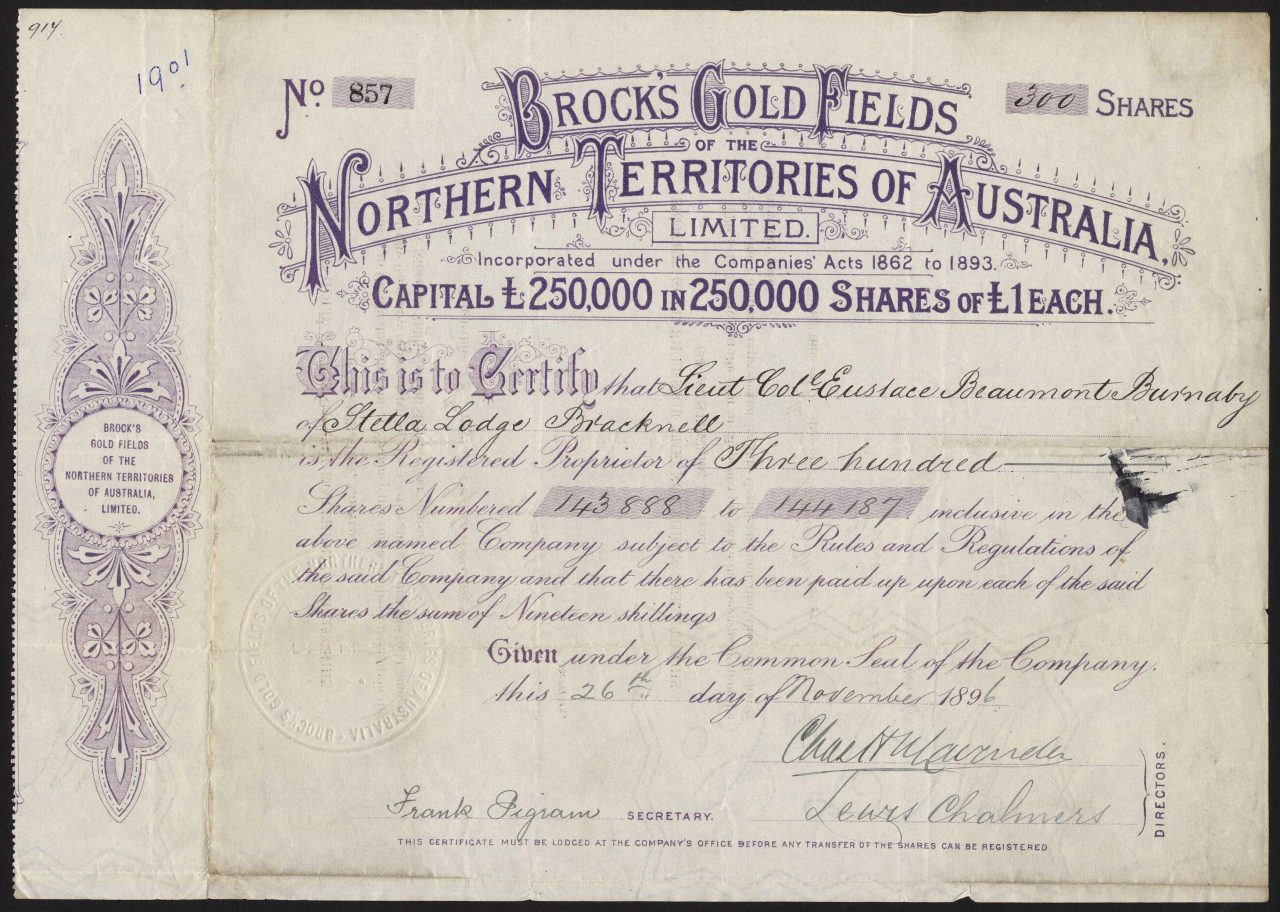 914.
1901
No 857
300 SHARES
BROCK'S GOLD FIELDS
OF THE
NORTHERN TERRITORIES OF AUSTRALIA,
LIMITED.
Incorporated under the Companies' Acts 1862 to 1893.
CAPITAL £250,000 IN 250,000 SHARES OF £1 EACH.
This is to Certify that Lieut Col Eustace Beaumont Burnaby
of Stella Lodge Bracknell
is the Registered Proprietor of Three hundred
Shares Numbered 143888 to 144187 inclusive in the
above named Company subject to the Rules and Regulations of
the said Company and that there has been paid up upon each of the said
Shares the sum of Nineteen shillings
Given under the Common Seal of the Company.
this 26th day of November 1896
Chas H
Lewis Chalmers
DIRECTORS.
Frank Pigram SECRETARY.
THIS CERTIFICATE MUST BE LODGED AT THE COMPANY'S OFFICE BEFORE ANY TRANSFER OF THE SHARES CAN BE REGISTERED
BROCK'S
GOLD FIELDS
OF THE
NORTHERN TERRITORIES
OF AUSTRALIA,
LIMITED.
BROCK'S GOLD FIELDS OF THE NORTHERN TERRITORIES OF AUSTRALIA
LIMITED